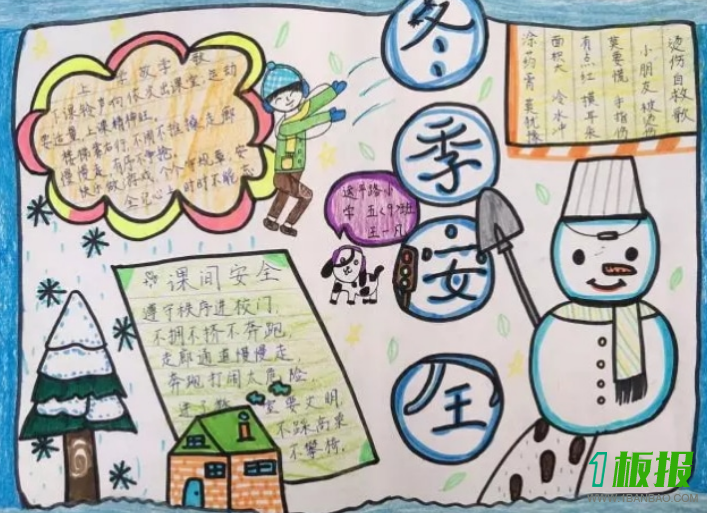 上 学 歌
下课铃声响依次出课室,运动
要适量上课精神旺。
楼梯靠右行,不闹不推搡走廊
慢慢走,有序不争抢。
快乐做游戏,个个守规章,安
全记心上时时不能忘
冬
季
安
全
烫伤自救歌
小朋友被烫伤
莫要慌 手指伤
有点红 摸耳朵
面积大 冷水冲
涂药膏
送平路小
学 五(9)班
王一凡
课间安全
遵守秩序进校门,
不拥不挤不奔跑,
走廊通道慢慢走,
奔跑打闹太危险,
进了教室要文明,
不踩高来
不攀椅.
1板报
WWW.1BANBAO.COM